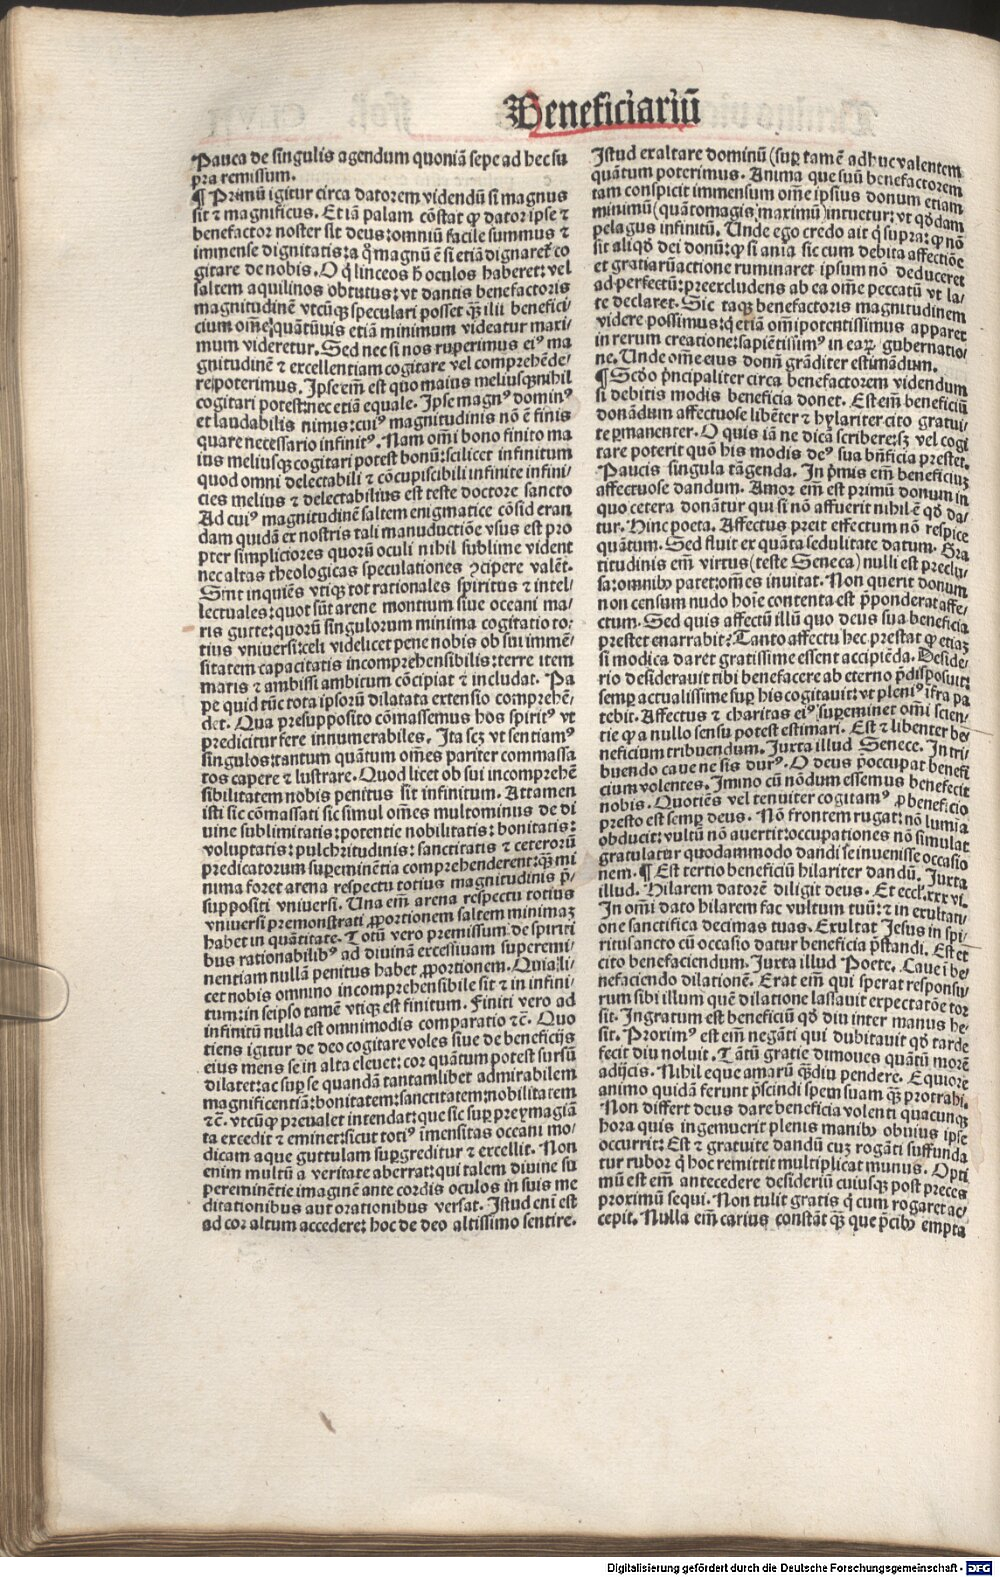 Beneficiariū
Pauca de singulis agendum quoniā sepe ad hec su
pra remissum.
¶ Primū igitur circa datorem videndū si magnus
sit ⁊ magnificus. Et iā palam cōstat ꝙ dator ipse ⁊
benefactor noster sit deus: omniū facile summus ⁊
immense dignitatis: a q̊ magnū ē si etiā dignaret̉ co
gitare de nobis. O q̇ linceos h̄ oculos haberet: vel
saltem aquilinos obtutus: vt dantis benefactoris
magnitudinē vtcūqꝫ speculari posset qꝫ̄ illi benefici⸗
cium om̄e: quātūuis etiā minimum videatur maxi⸗
mum videretur. Sed nec si nos ruperimus eiꝰ ma
gnitudinē ⁊ excellentiam cogitare vel comprehēde⸗
re poterimus. Ipse em̄ est quo maius meliusqꝫ nihil
cogitari potest: nec etiā equale. Ipse magnꝰ dominꝰ
et laudabilis nimis: cuiꝰ magnitudinis nō ē finis
quare necessario infinitꝰ. Nam om̄i bono finito ma
ius meliusqꝫ cogitari potest bonū: scilicet infinitum
quod omni delectabili ⁊ cōcupiscibili infinite infini⸗
cies melius ⁊ delectabilius est teste doctore sancto
Ad cuiꝰ magnitudinē saltem enigmatice cōsideran
dam quidā ex nostris tali manuductiōe vsus est pro
pter simpliciores quorū oculi nihil sublime vident
nec altas theologicas speculationes ꝯcipere valēt.
Sint inquiēs vtiqꝫ tot rationales spiritus ⁊ intel⸗
lectuales: quot sūt arene montium siue oceani ma⸗
ris gutte: quorū singulorum minima cogitatio to⸗
tius vniuersi: celi videlicet pene nobis ob sui immē⸗
sitatem capacitatis incomprehensibilis: terre item
maris ⁊ ambissi ambitum cōcipiat ⁊ includat. Pa
pe quid tūc tota ipsorū dilatata extensio comprehē⸗
det. Qua presupposito cōmassemus hos spiritꝰ vt
predicitur fere innumerabiles. Ita seꝫ vt sentiamꝰ
singulos: tantum quātum om̄es pariter commassa
tos capere ⁊ lustrare. Quod licet ob sui incomprehē
sibilitatem nobis penitus sit infinitum. Attamen
isti sic cōmassati sic simul om̄es multominus de di
uine sublimitatis: potentie nobilitatis: bonitatis:
voluptatis: pulchritudinis: sanctitatis ⁊ ceterorū
predicatorum supeminētia comprehenderent: qꝫ̄ mi
nima foret arena respectu totius magnitudinis p̄
suppositi vniuersi. Una em̄ arena respectu totius
vniuersi premonstrati ꝓportionem saltem minimaꝫ
habet in quātitate. Totū vero premissum de spiriti
bus rationabilibꝰ ad diuinā excessiuam superemi⸗
nentiam nullā penitus habet ꝓportionem. Quia: li⸗
cet nobis omnino incomprehensibile sit ⁊ in infini⸗
tum: in seipso tamē vtiqꝫ est finitum. Finiti vero ad
infinitū nulla est omnimodis comparatio ⁊c̄. Quo
tiens igitur de deo cogitare voles siue de beneficijs
eius mens se in alta eleuet: cor quātum potest sursū
dilatet: ac sup̱ se quandā tantamlibet admirabilem
magnificentiā: bonitatem: sanctitatem: nobilitatem
⁊c̄. vtcūqꝫ preualet intendat: que sic sup̱ preymagia
ta excedit ⁊ eminet: sicut totiꝰ īmensitas oceani mo⸗
dicam aque guttulam sup̱greditur ⁊ excellit. Non
enim multū a veritate aberrat: qui talem diuine su
pereminētie imaginē ante cordis oculos in suis me
ditationibus aut orationibus versat. Istud eni est
ad cor altum accedere: hoc de deo altissimo sentire.
Istud exaltare dominū (sup̱ tamē adhuc valentem
quātum poterimus. Anima que suū benefactorem
tam conspicit immensum om̄e ipsius donum etiam
minimū (quātomagis maximū) intuetur: vt qd̓dam
pelagus infinitū. Unde ego credo ait q̇ supra: ꝙ nō
sit aliqd̓ dei donū: ꝙ si aīa sic cum debita affectiōe
et gratiarūactione ruminaret ipsum nō deduceret
ad perfectū: preexcludens ab ea om̄e peccatū vt la⸗
te declaret. Sic itaqꝫ benefactoris magnitudinem
videre possimus: q̇ etiā om̄ipotentissimus apparet
in rerum creatione: sapiētissimꝰ in earꝝ gubernatio⸗
ne. Unde om̄e eius donū grāditer estimādum.
¶ Scd̓o p̄ncipaliter circa benefactorem videndum
si debitis modis beneficia donet. Est em̄ beneficiū
donādum affectuose libēter ⁊ hylariter cito gratui⸗
te p̱manenter. O quis iā ne dicā scribere: sꝫ vel cogi
tare poterit quō his modis deꝰ sua bn̄ficia prestet.
Paucis singula tāgenda. In p̄mis em̄ beneficiuꝫ
affectuose dandum. Amor em̄ est primū donum in
quo cetera donātur qui si nō affuerit nihil ē qd̓ da⸗
tur. Hinc poeta. Affectus preit effectum nō respice
quātum. Sed fluit ex quāta sedulitate datum. Gra
titudinis em̄ virtus (teste Seneca) nulli est preclu⸗
sa: omnibꝰ patet: om̄es inuitat. Non querit donum
non censum nudo hoīe contenta est p̄ponderat affe⸗
ctum. Sed quis affectū illū quo deus sua beneficia
prestet enarrabit? Tanto affectu hec prestat ꝙ etiaꝫ
si modica daret gratissime essent accipiēda. Deside⸗
rio desiderauit tibi benefacere ab eterno p̄disposuit:
semp̱ actualissime sup̱ his cogitauit: vt pleniꝰ īfra pa
tebit. Affectus ⁊ charitas eiꝰ supeminet omni scien⸗
tie ꝙ a nullo sensu potest estimari. Est ⁊ libenter be⸗
neficium tribuendum. Juxta illud Senece. In tri⸗
buendo caue ne sis durꝰ. O deus p̄occupat benefi
cium volentes. Immo cū nōdum essemus benefecit
nobis. Quotiēs vel tenuiter cogitamꝰ ꝓ beneficio
presto est semp̱ deus. Nō frontem rugat: nō lumia
obducit: vultū nō auertit: occupationes nō simulat
gratulatur quodammodo dandi se inuenisse occasio
nem. ¶ Est tertio beneficiū hilariter dandū. Juxta
illud. Hilarem datorē diligit deus. Et eccl̓. xxxvi.
In om̄i dato hilarem fac vultum tuū: ⁊ in exultati⸗
one sanctifica decimas tuas. Exultat Jesus in spi⸗
ritusancto cū occasio datur beneficia p̄standi. Est et
cito benefaciendum. Juxta illud Poete. Caue ī be⸗
nefaciendo dilationē. Erat em̄ qui sperat responsu⸗
rum sibi illum quē dilatione lassauit expectatōe tor
sit. Ingratum est beneficiū qd̓ diu inter manus he⸗
sit. Proximꝰ est em̄ negāti qui dubitauit qd̓ tarde
fecit diu noluit. Tātū gratie dimoues quātū morē
adijcis. Nihil eque amarū qꝫ̄diu pendere. Equiore
animo quidā ferunt p̄scindi spem suam qꝫ̄ protrahi.
Non differt deus dare beneficia volenti quacunqꝫ
hora quis ingemuerit plenis manibꝰ obuius ipse
occurrit: Est ⁊ gratuite dandū cuꝫ rogāti suffunda
tur rubor q̇ hoc remittit multiplicat munus. Opti
mū est em̄ antecedere desideriū cuiusqꝫ post preces
proximū sequi. Non tulit gratis q̇ cum rogaret ac⸗
cepit. Nulla em̄ carius constāt qꝫ̄ que p̄cibꝰ empta
Digitalisierung gefördert durch die Deutsche Forschungsgemeinschaft - DFG